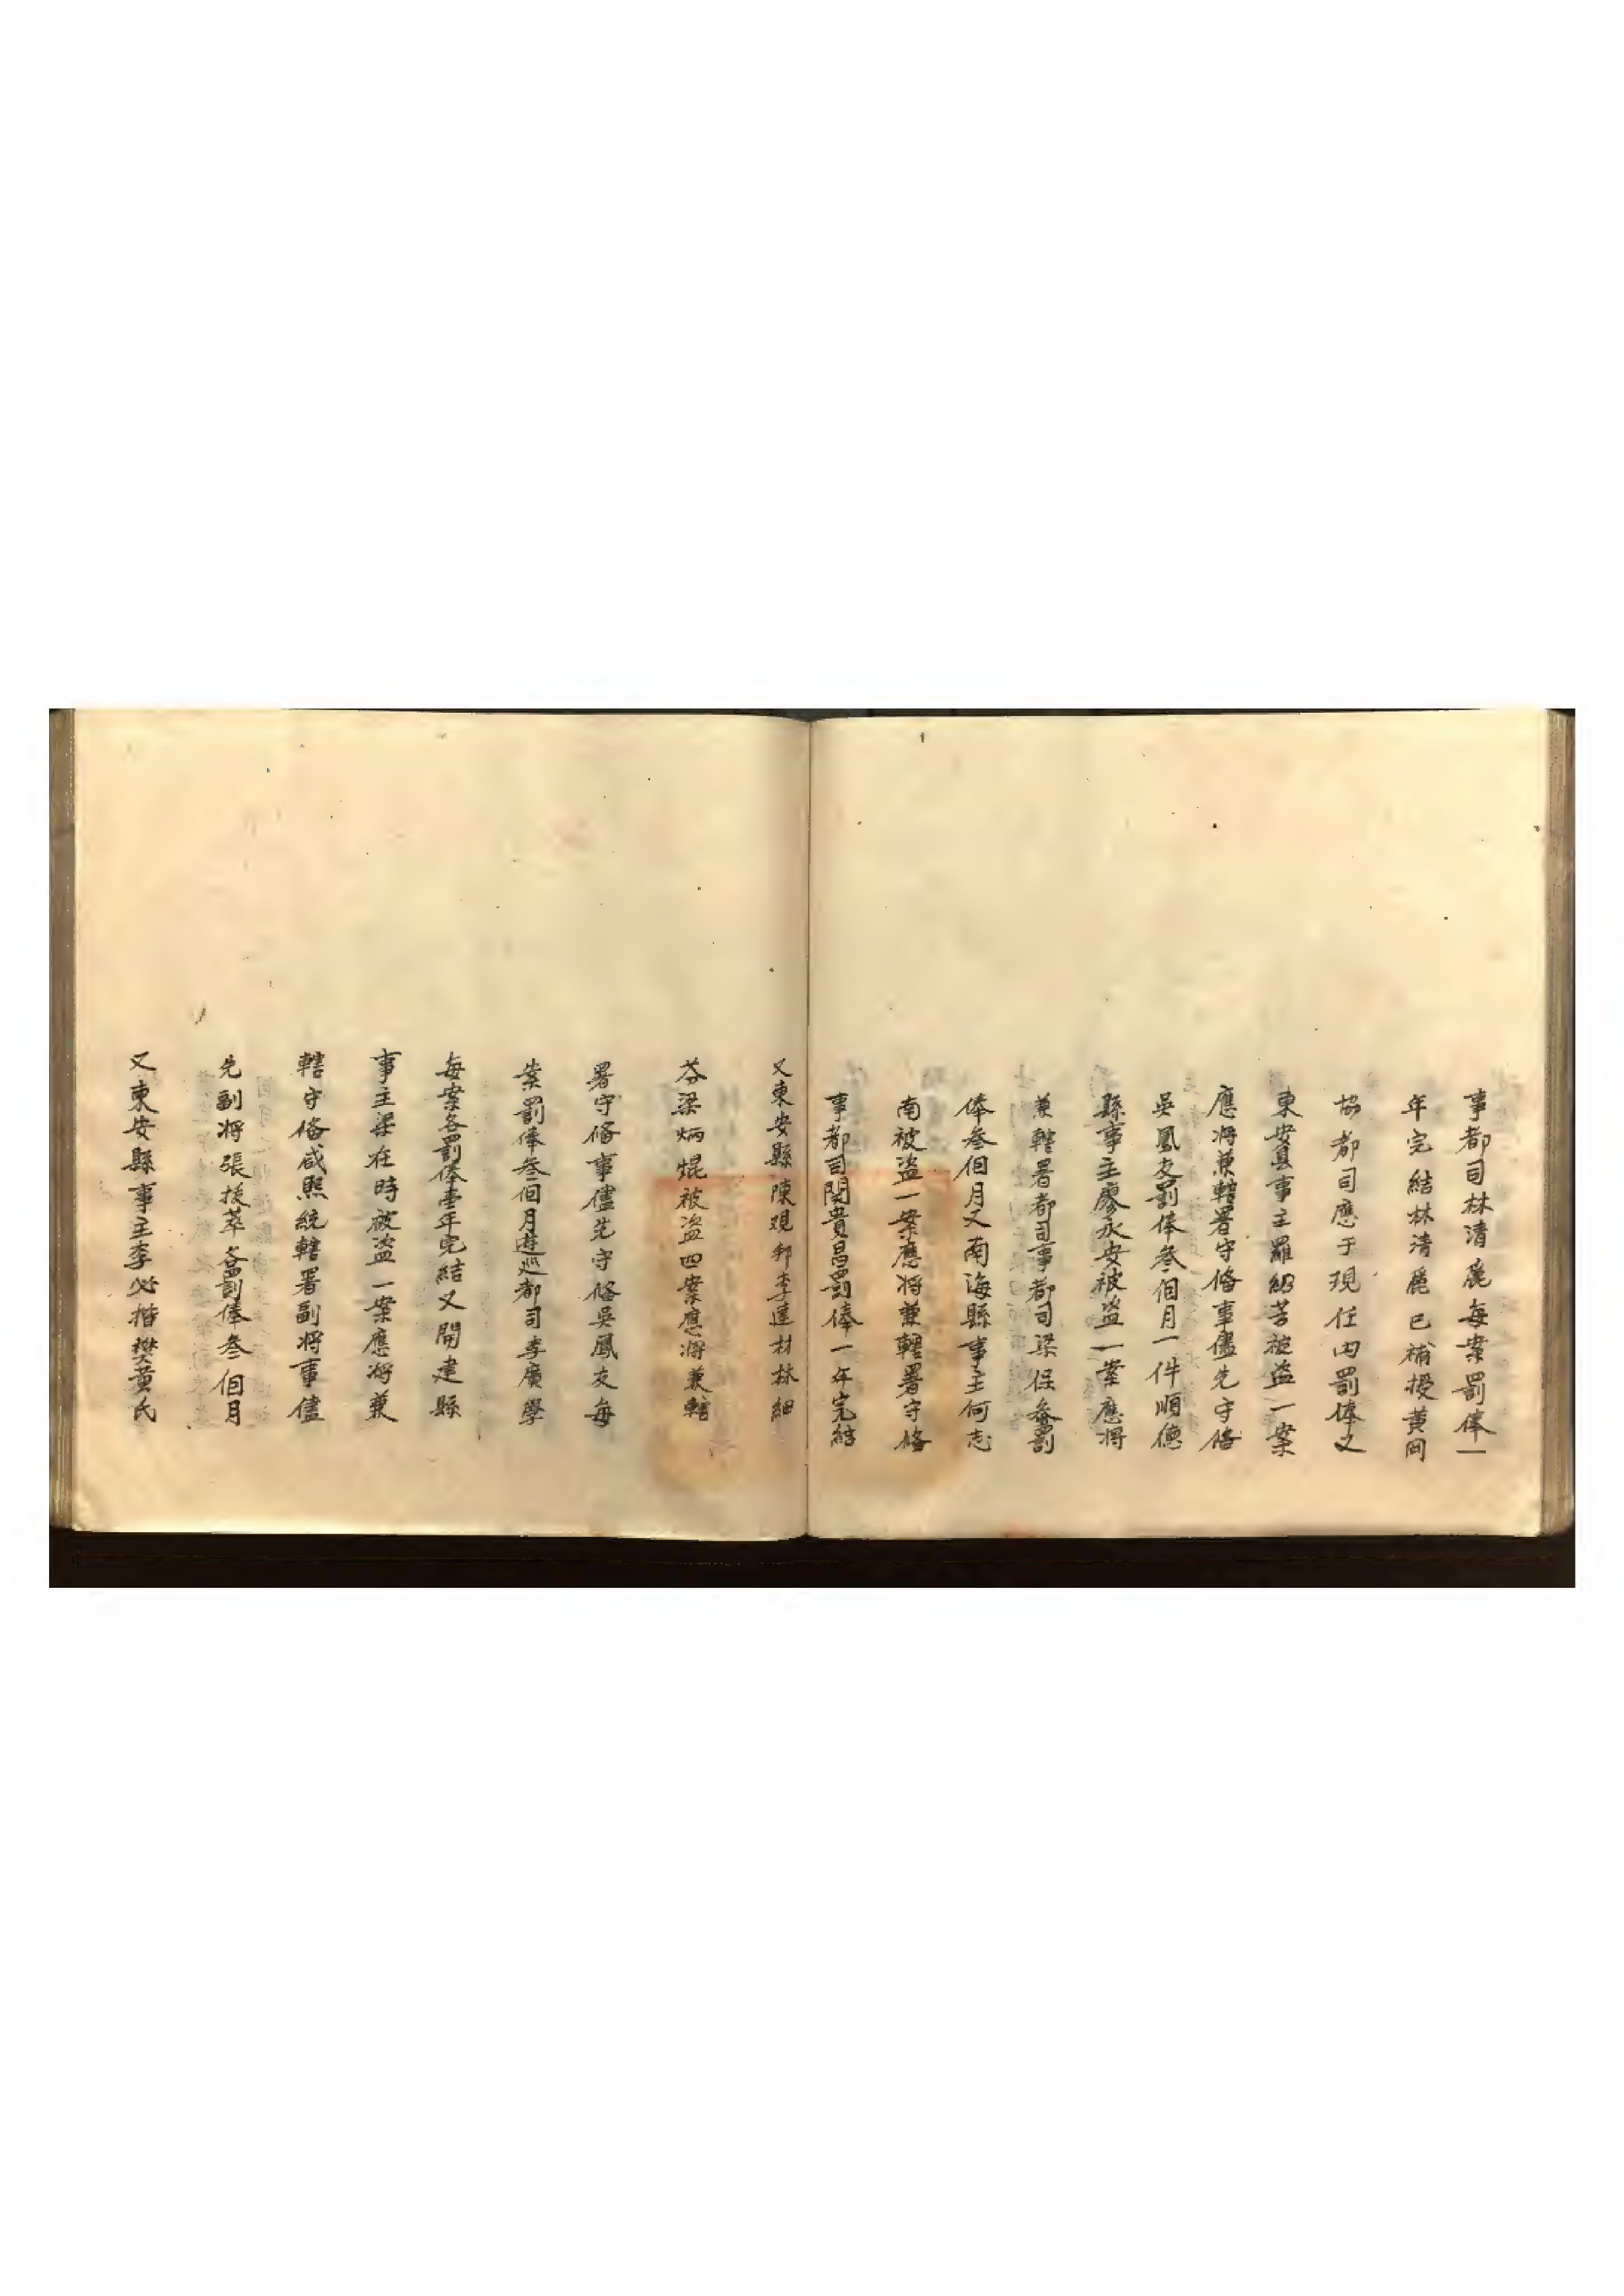 事都司林清麃每案罰俸一
年完結林清麃已補授黄岡
協都司應于現任内罰俸又
東安县事主羅紹芳被盗一案
應将兼轄署守偹事儘先守偹
吳鳳支罰俸叁個月一件順德
縣事主廖永安被盗一案應将
兼轄署都司事都司梁任叅罰
俸叁個月又南海縣事主何志
南被盗一案應将兼轄署守偹
事都司関貴昌罰俸一年完結
又東安縣陳观邦李蓬材林細
芬梁炳焜被盗四案應将兼轄
署守偹事儘先守偹吳鳳支每
案罰俸叁個月遊巡都司李廣學
每案各罰俸壹年完結又開建縣
事主梁在時被盗一案應将兼
轄守偹咸熙統轄署副将事儘
先副将張拔萃各罰俸叁個月
又東安縣事主李必楷樊黄氏